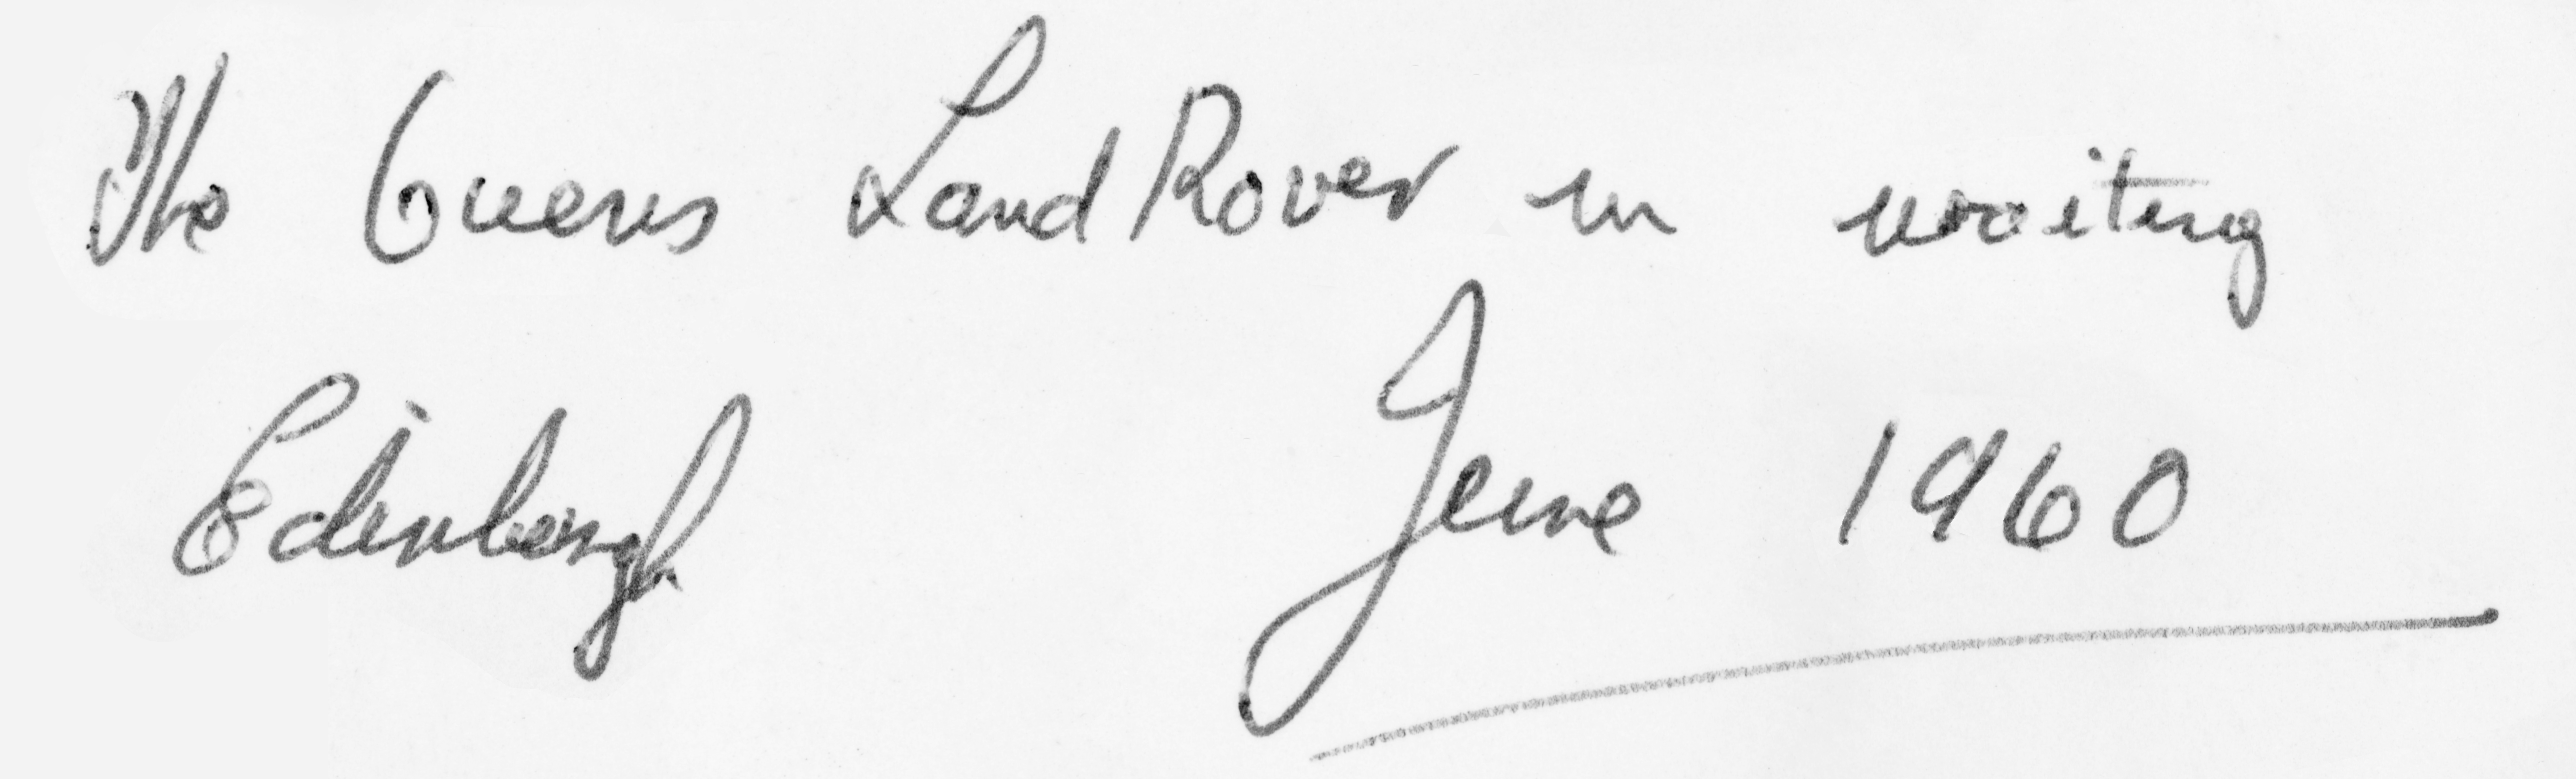 The Queens Land Rover in waiting
Edinburgh June 1960